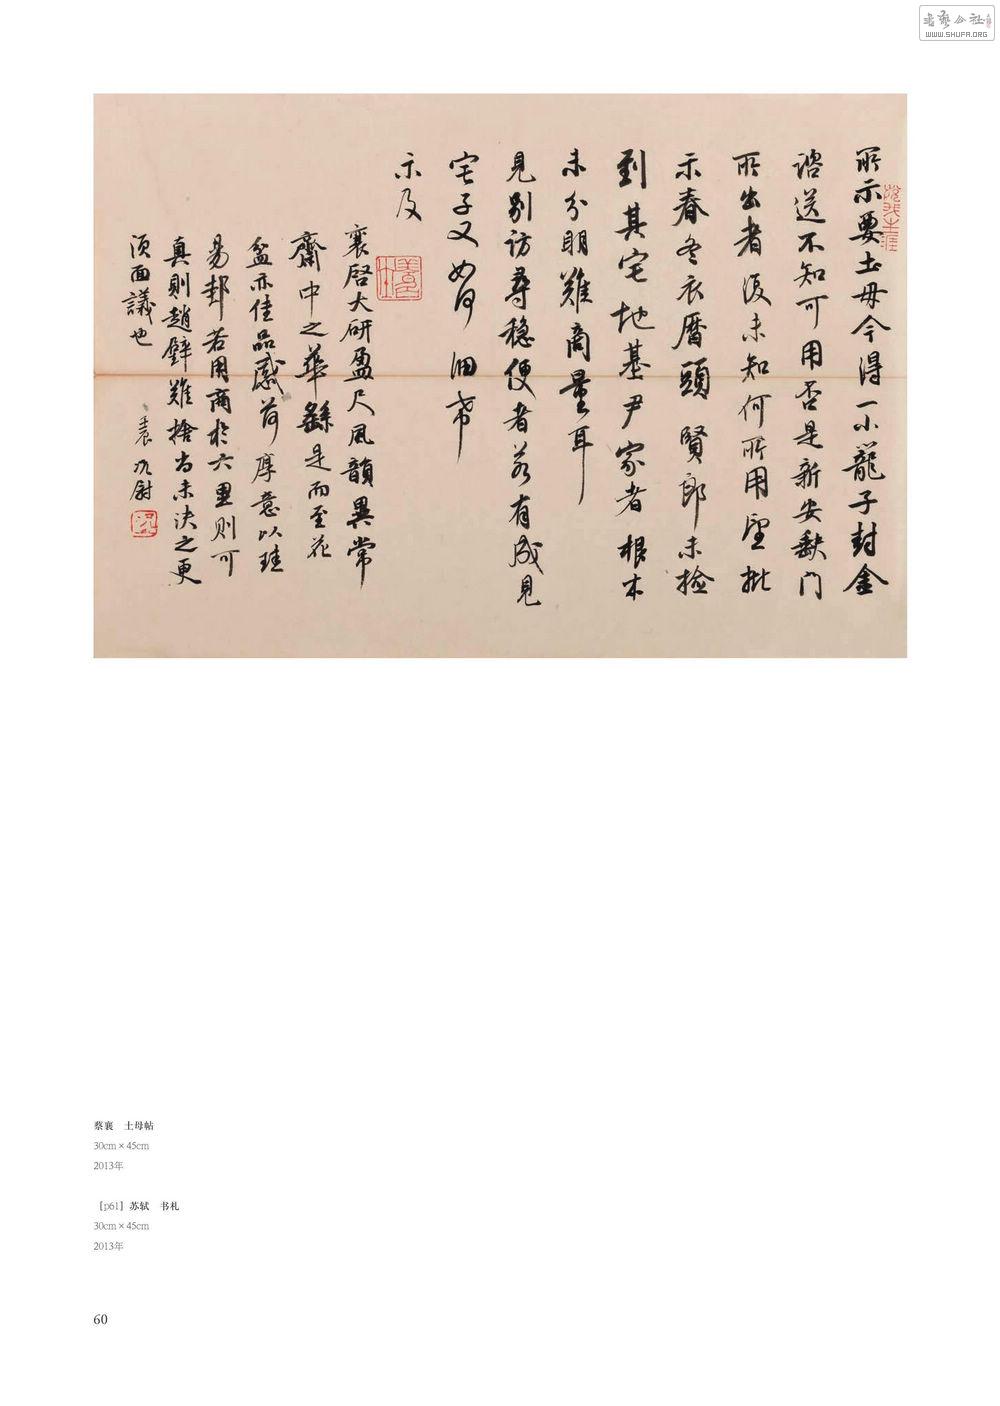 所示要土母今得一小籠子封金
諮送不知可用否是新安缺门
所出者復未知何所用望批
示春冬衣曆頭賢郎未检
到其宅地基尹家者根本
未分明難商量耳
見别访尋穏便者若有成見
宅子又如何洄希
示及
襄啓大研盈尺風韻異常
齋中之華繇是而至花
盆亦佳品感荷厚意以珪
易邽若用商於六里則可
真則趙璧難捨尚未決之更
须面議也
蔡襄 土母帖
30cm×45cm
2013年
［p61］苏轼 书札
30cm×45cm
2013年
60
书艺公社
WWW.SHUFA.ORG